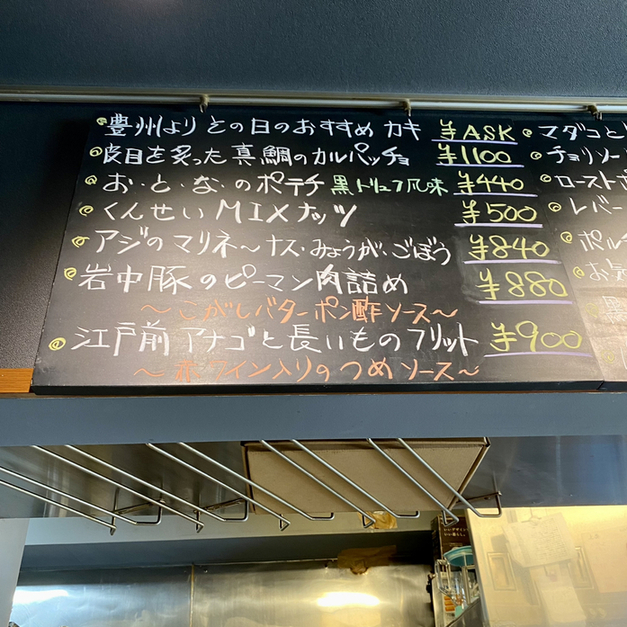 豊州よりその日のおすすめ カキ ¥ASK
皮目を炙った真鯛のカルパッチョ ¥1100
お・と・な・のポテチ 黒トリュフ風味 ¥440
くんせい MIXナッツ ¥500
アジの マリネ〜ナス・みょうが・ごぼう ¥840
岩中豚のピーマン肉詰め ¥880
〜こがしバターポン酢ソース〜
江戸前アナゴと長いものフリット ¥900
〜赤ワイン入りのつめソース〜
マダコと
チョリソー
ロースト
レバー
ポル
お気